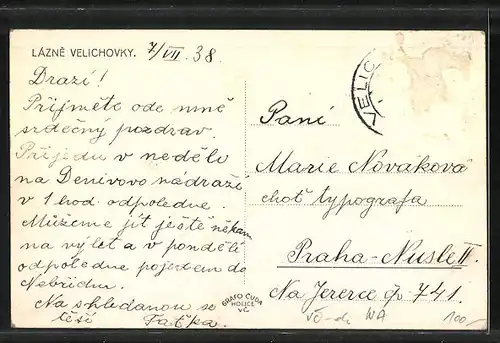 LÁZNĚ VELICHOVKY. 7/VII. 38.
Drazí!
Přijměte ode mně
srdečný pozdrav.
Přijedu v neděli
na Denisovo nádraží
v 1 hod. odpoledne.
Můžeme jít ještě někam
na výlet a v pondělí
odpoledne pojedem do
Na shledanou se
těší Faťka.
VELIC
Paní
Marie Nováková
choť typografa
Praha-Nusle II.
Na Jezerce čp 741.
GRAFO ČUDA
HOLICE
VČ
100,-